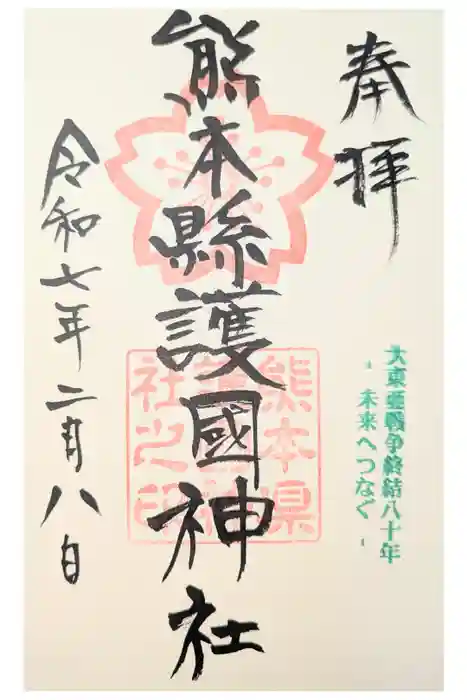 奉拝
大東亜戦争終結八十年
-未来へつなぐ-
熊本縣護國神社
熊本県
護國神
社之印
令和七年二月八日